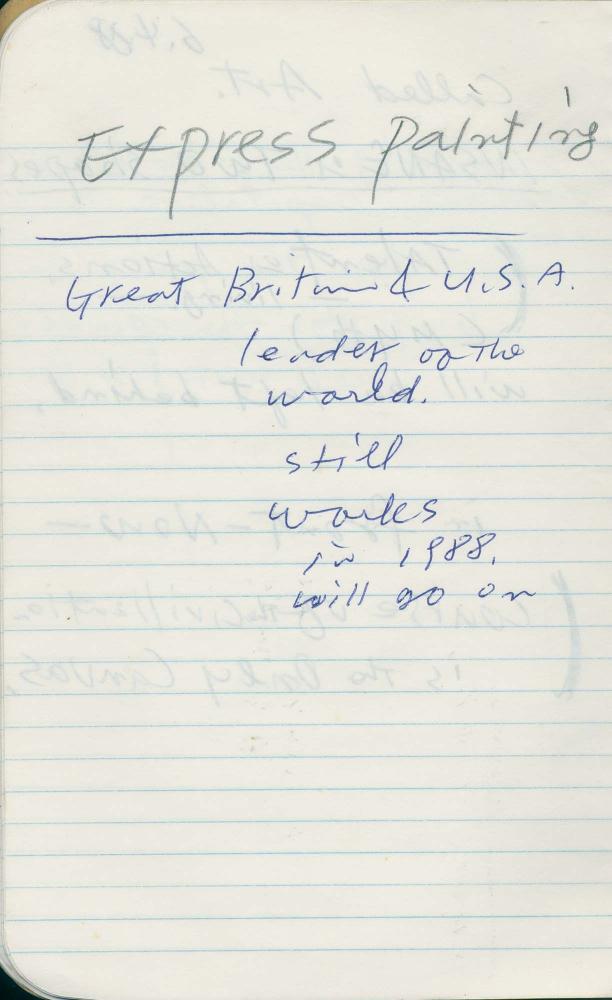 Express Painting
Great Britain & U.S.A.
leader of the
world.
still
works
in 1988.
will go on